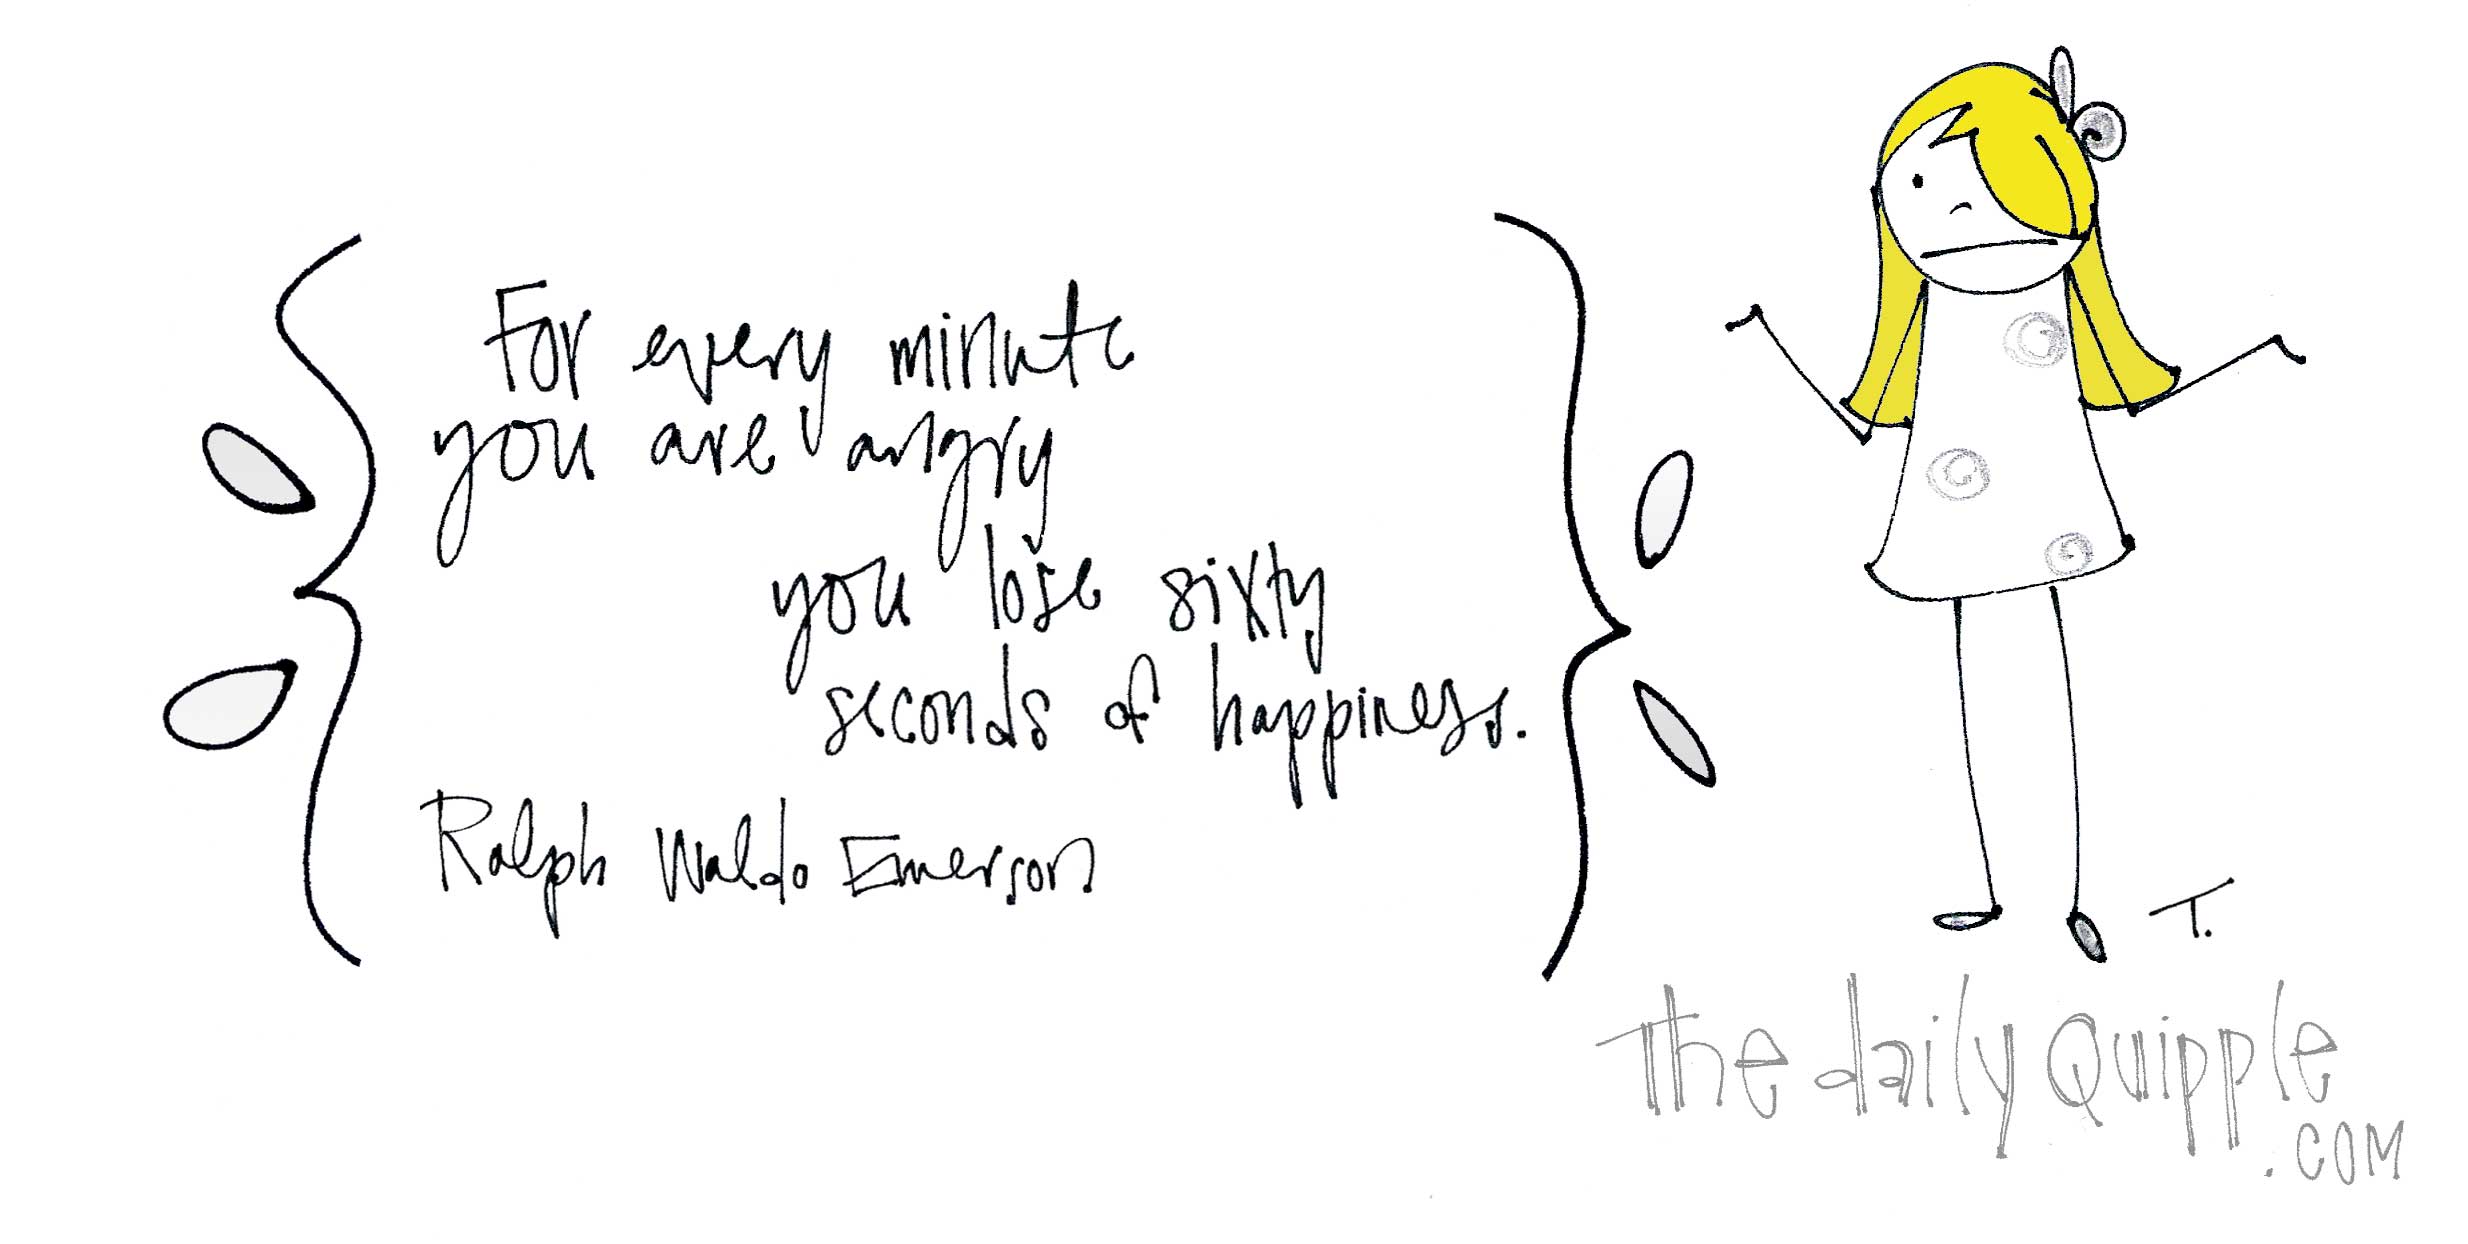 For every minute
you are angry
you lose sixty
seconds of happiness.
Ralph Waldo Emerson
T.
The daily Quipple
.com